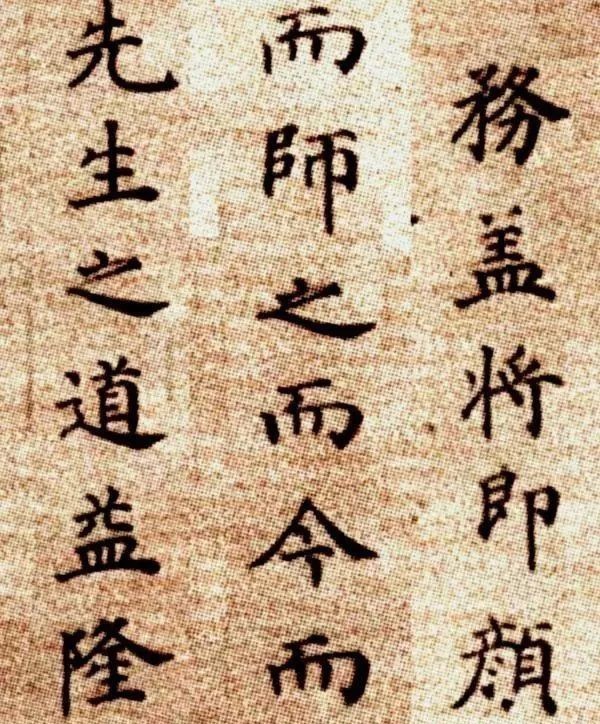 務盖将即顔
而師之而今而
先生之道益隆